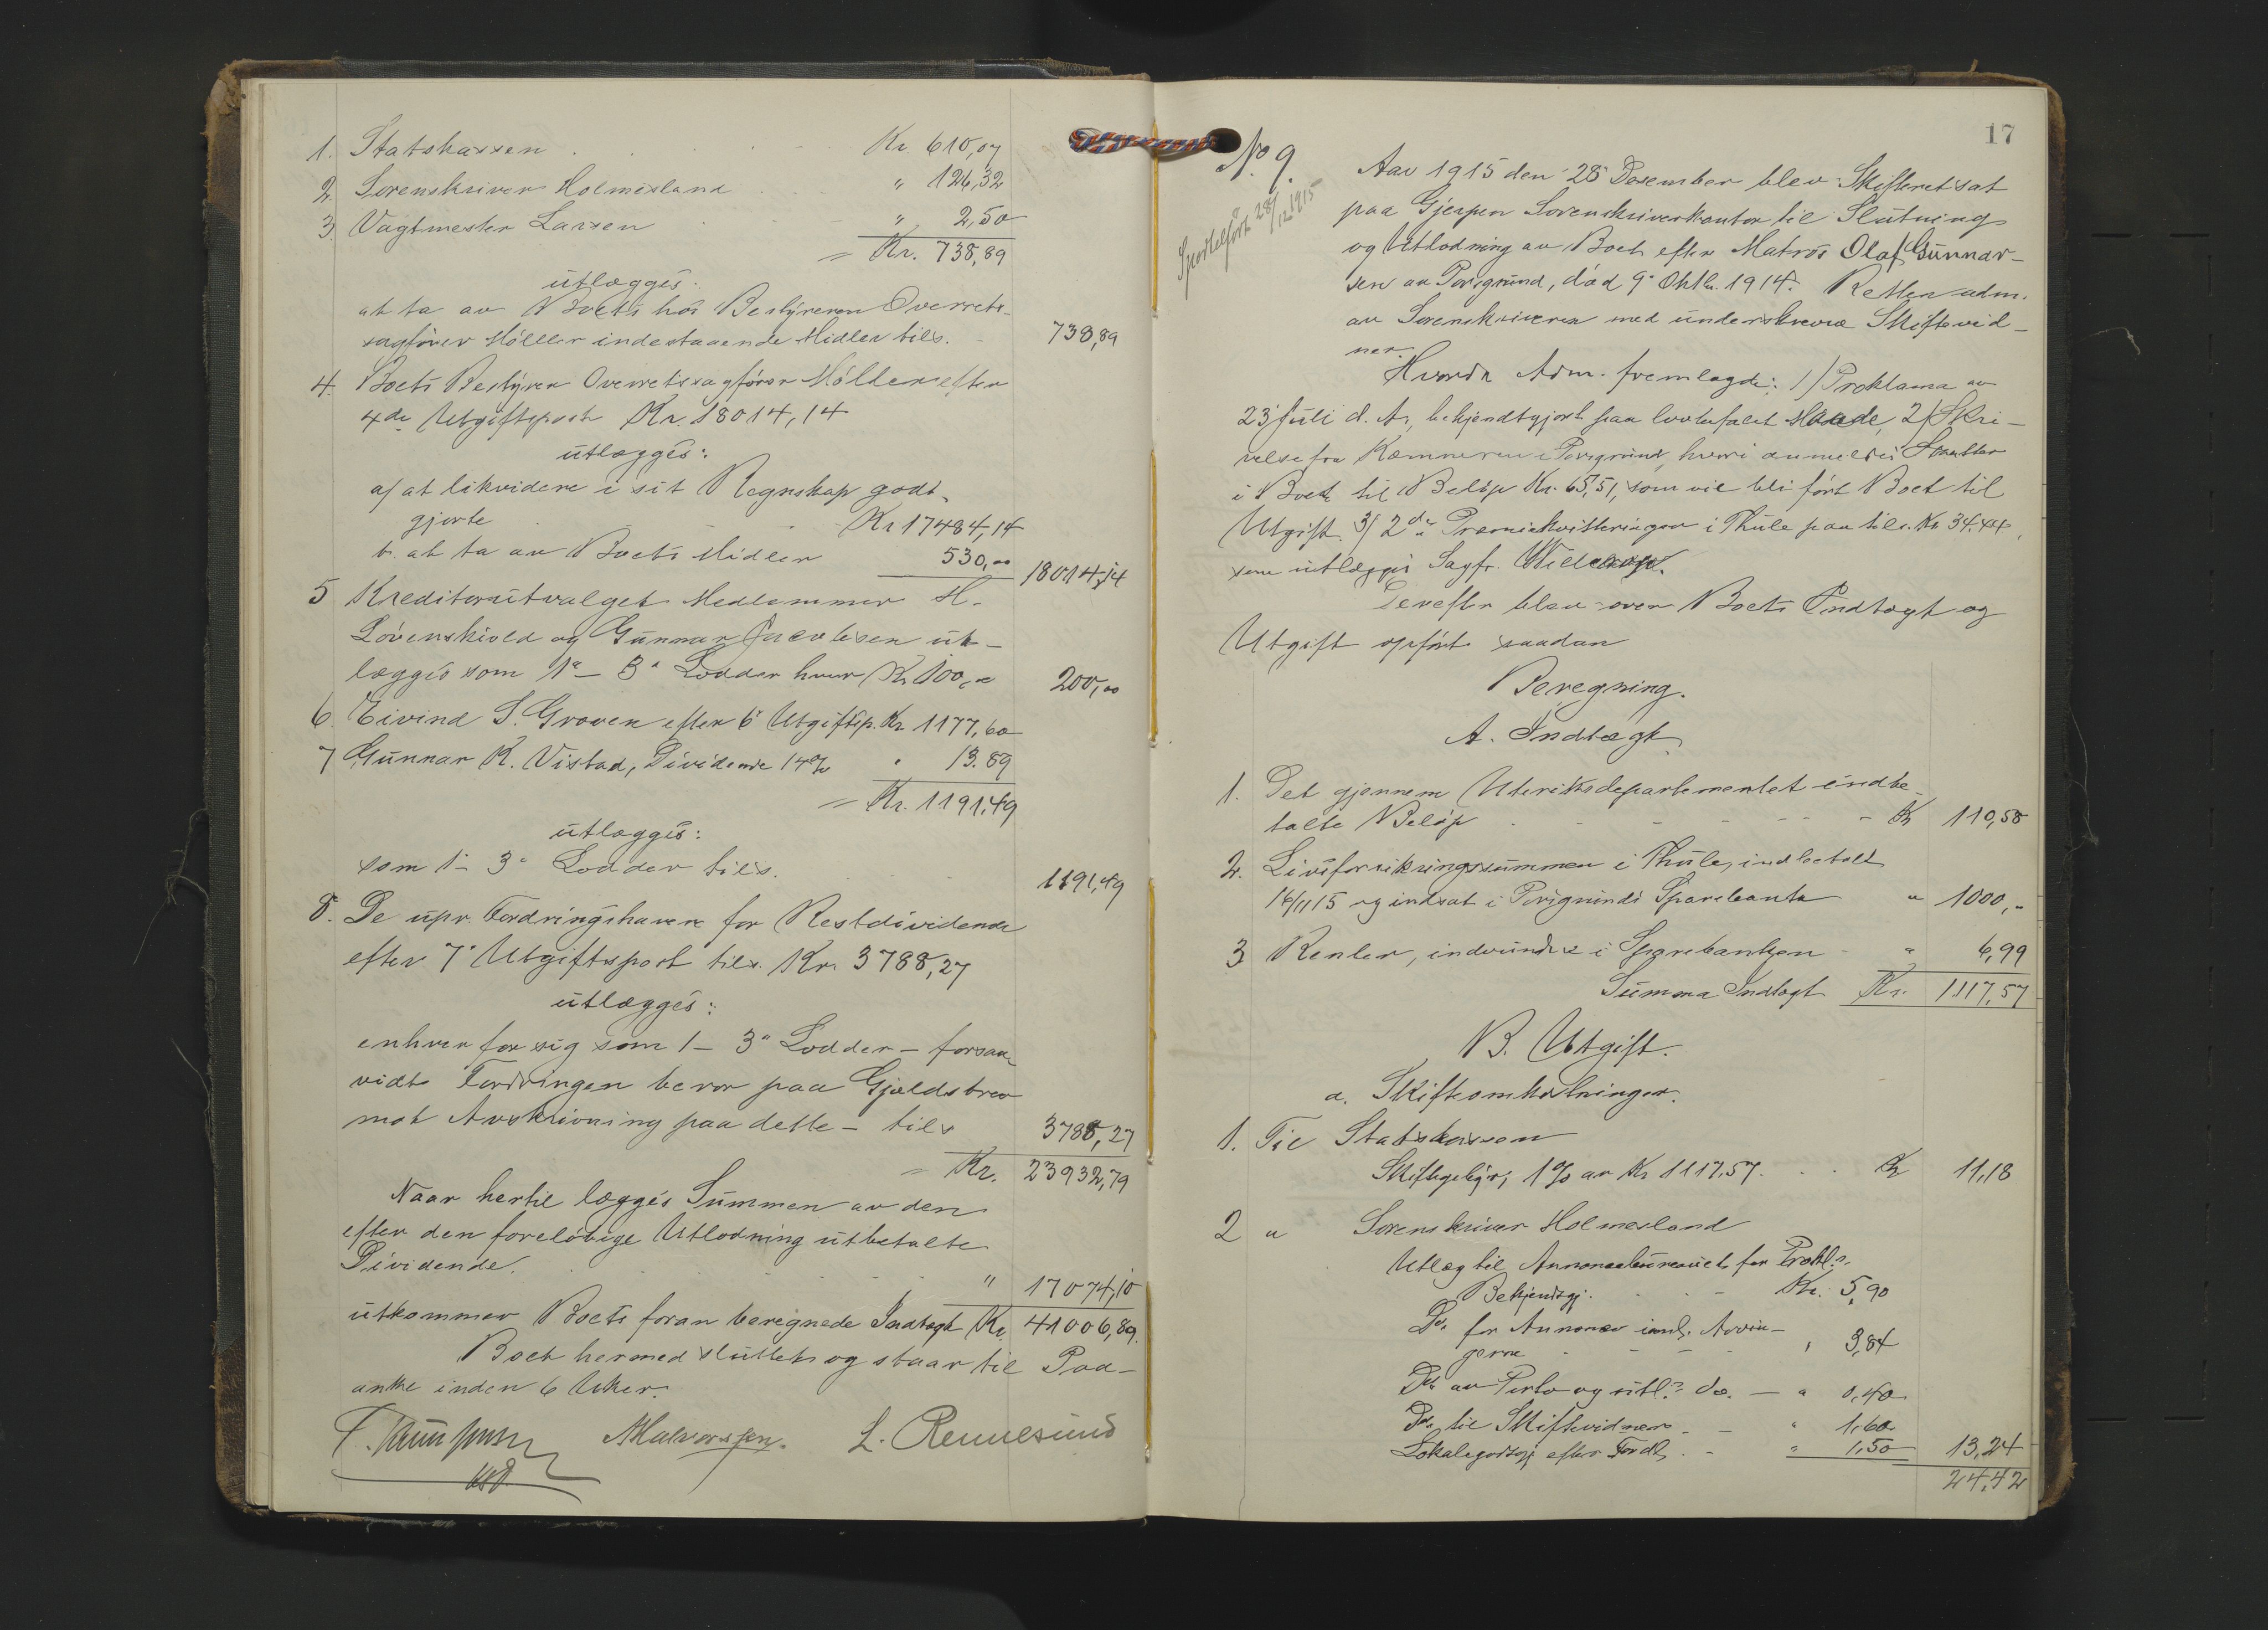 1. Statskassen . . . Kr 610,07
2. Sorenskriver Holmesland . . " 126,32
3. Vagtmester Larsen . . " 2,50
= Kr. 738,89
utlægges:
at ta av Boets hos Bestyreren Overrets-
sagfører Møller indestaaende Midler tils. - 738,89
4. Boets Bestyrer Overretssagfører Møller efter
4de Utgiftspost Kr. 18014,14
utlægges:
a/ at likvidere i sit Regnskap godt-
gjorte . . Kr 17484,14
b. at ta av Boets Midler 530,00 18014,14
5 Kreditorutvalgets Medlemmer H.
Løvenskiold og Gunnar Jacobsen ut-
lægges som 1e - 3e Lodder hver Kr 100,00 200,00
6. Eivind S. Groven efter 6e Utgiftsp. Kr 1177,60
7 Gunnar K. Vistad, Dividende 14% " 13.89
= Kr. 1191,49
utlægges:
som 1 - 3e Lodder tils. . . . 1191,49
8. De upr. Fordringshavere for Restdividende
efter 7e Utgiftspost tils. Kr. 3788,27
utlægges:
enhver for sig som 1 - 3e Lodder - forsaa-
vidt Fordringen beror paa Gjældsbrev
mot Avskrivning paa dette - tils 3788,27
= Kr. 23932,79
Naar hertil lægges Summen av den
efter den foreløbige Utlodning utbetalte
Dividende. . . . . . " 17074,10
utkommer Boets foran beregnede Indtægt Kr. 41006,89.
Boet hermed sluttet og staar til Paa-
anke inden 6 Uker.
L. Rennesund
17
No. 9.
Sportelført 28/12 1915
Aar 1915 den 28 Desember blev Skifteret sat
paa Gjerpen Sorenskriverkontor til Slutning
og Utlodning av Boet efter Matros Olaf Gunnar-
sen av Porsgrund, død 9e Oktbr. 1914. Retten adm.
av Sorenskriveren med underskrevne Skiftevid-
ner.
Hvorda Adm. fremlagde: 1/ Proklama av
23 Juli d. A., bekjendtgjort paa lovbefalet Maade, 2/ Skri-
velse fra Kæmneren i Porsgrund, hvori anmeldes Skatter
i Boet til Beløp Kr. 65,51, som vil bli ført Boet til
Utgift. 3/ 2de Præmiekvitteringer i Thule paa tils. Kr 34.44,
som utlægges Sagf.
Derefter blev over Boets Indtægt og
Utgift opført saadan
Beregning.
A. Indtægt.
1. Det gjennem Utenriksdepartementet indbe-
talte Beløp . - - - - - - Kr 110,58
2. Livsforsikringssummen i Thule, indbetalt
16/11 15 og indsat i Porsgrunds Sparebank " 1000,"
3 Renter, indvundne i Sparebanken - " 6,99
Summa Indtægt Kr. 1117,57
B. Utgift.
a. Skifteomkostninger.
1. Til Statskassen
Skiftegebyr, 1% av Kr 1117.57. . . Kr 11,18
2 " Sorenskriver Holmesland
Utlæg til Annoncebureauet for Prokl.s
Bekjendtgj. . . - Kr. 5,90
Do. for Annonce indk. Arvin-
gerne - - - - " 3,84
Do. av Porto og utl. do. - " 0,40
Do. til Skiftevidner - - " 1,60
Lokalegodtgj. efter Fordl. . - " 1,50 13,24
24,42